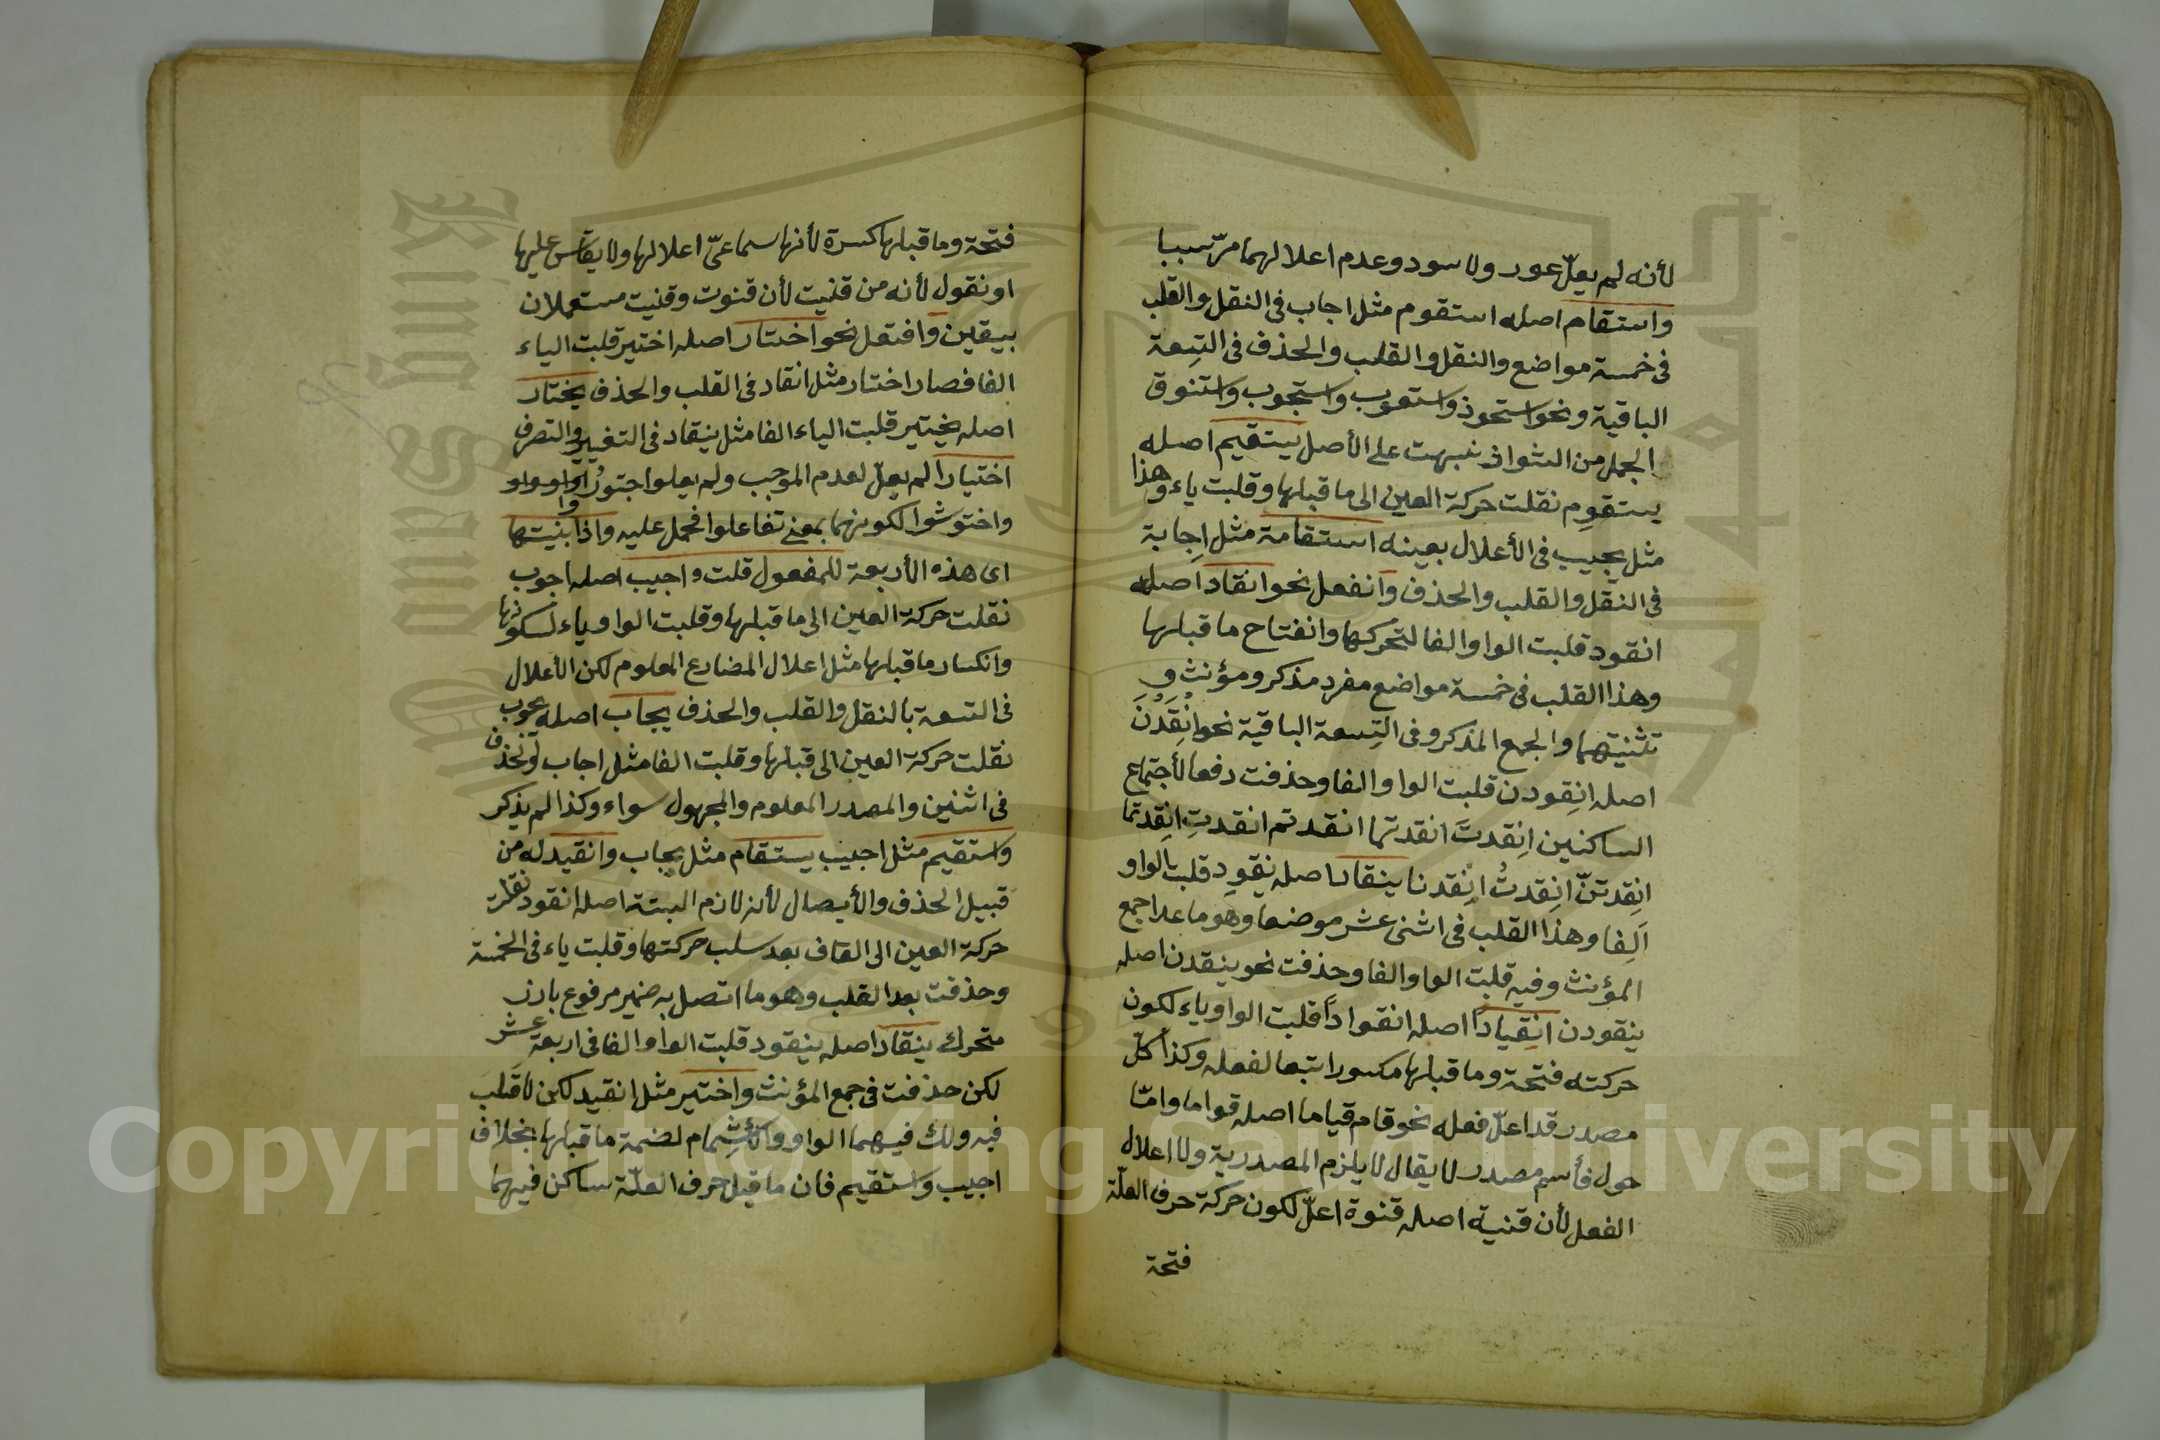 لأنه لم يعلّ عور ولا سود وعدم اعلالهما مرّ سببا
واستقام اصله استقوم مثل اجاب فى النقل والقلب
فى خمسة مواضع والنقل والقلب والحذف فى التِسعة
الباقية ونحو استحوذ واستصوب واستجوب واستنوق
الجمل من الشواذ نبهت على الأصل يستقيم اصله
يستقوِم نقلت حركة العين الى ما قبلها وقلبت ياء وهذا
مثل يجيب فى الأعلال بعينه استقامة مثل اِجابة
فى النقل والقلب والحذف وانفعل نحو انقاد اصله
انقود قلبت الواو الفا لتحركها وانفتاح ما قبلها
وهذا القلب فى خمسة مواضع مفرد مذكر ومؤنث و
تثنيتهما والجمع المذكر وفى التِسعة الباقية نحو انقَدْنَ
اصله انِقودن قلبت الواو الفا وحذفت دفعا لأجتماع
الساكنين اِنقدتَ انقدتما انقدتم انقدتِ اِنقدتما
اِنقدتنّ اِنقدتُ اِنقدنا ينقاد اصله ينقوِد قلبت الواو
اَلِفا وهذا القلب فى اثنى عشر موضعا وهو ما عدا جمع
المؤنث وفيه قلبت الواو الفا وحذفت نحو ينقدن اصله
ينقودن انقياداً اصله انقواداً قلبت الواو ياء لكون
حركته فتحة وما قبلها مكسورا تبعا لفعله وكذا كلّ
مصدر قد اعلّ فعله نحو قام قياما اصله قواما وامّا
حول فأسم مصدر لا يقال لا يلزم المصدرية ولا اعلال
الفعل لأن قنية اصله قنوة اعلّ لكون حركة حرف العلّة
فتحة
فتحة وما قبلها كسرة لأنها سماعىّ اعلالها ولا يقاس عليها
او نقول لأنه من قنيت لأن قنوت وقنيت مستعملان
بيقين وافتعل نحو اختار اصله اختير قلبت الياء
الفا فصار اختار مثل انقاد فى القلب والحذف يختار
اصله يختير قلبت الياء الفا مثل ينقاد فى التغيير والتصرف
اختيارا لم يعلّ لعدم الموجب ولم يعلوا اجتوُروا
واختوشوا لكونهما بمعنى تفاعلوا فحمل عليه واذا بنيتها
اى هذه الأربعة للمفعول قلت واجيب اصله اجوب
نقلت حركة العين الى ما قبلها وقلبت الواو ياء لسكونها
وانكسار ما قبلها مثل اعلال المضارع المعلوم لكن الأعلال
فى التسعة بالنقل والقلب والحذف يجاب اصله يجوب
نقلت حركة العين الى قبلها وقلبت الفا مثل اجاب وتحذف
فى اثنين والمصدر المعلوم والمجهول سواء وكذا لم يذكر
واستقيم مثل اجيب يستقام مثل يجاب وانقيد له من
قبيل الحذف والأيصال لأنه لازم البتة اصله انقود نقلت
حركة العين الى القاف بعد سلب حركتها وقلبت ياء فى الخمسة
وحذفت بعد القلب وهو ما اتصل به ضمير مرفوع بارز
متحرك ينقاد اصله ينقود قلبت الواو الفا فى اربعة عشر
لكن حذفت فى جمع المؤنث واختير مثل انقيد لكن لا قلب
فيه ولك فيهما الواو والأشِمام لضمة ما قبلها بخلاف
اجيب واستقيم فان ما قبل حرف العلّة ساكن فيهما
Copyright © King Saud University